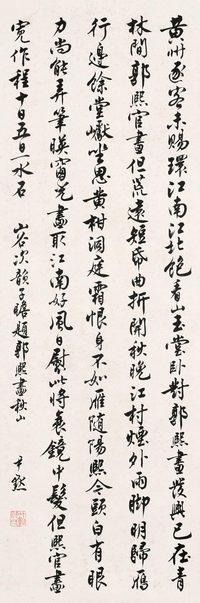 黃州逐客未賜環江南江北飽看山玉堂臥對郭熙畫發興已在青
林間郭熙官畫但荒遠短帋曲折開秋晚江村煙外雨脚明歸雁
行邊餘疊巘坐思黃柑洞庭霜恨身不如雁隨陽熙今頭白有眼
力尚能弄筆映窗光畫取江南好風日慰此將衰鏡中髮但熙肯畫
寬作程十日五日一水石 山谷次韻子瞻題郭熙畫秋山 尹默